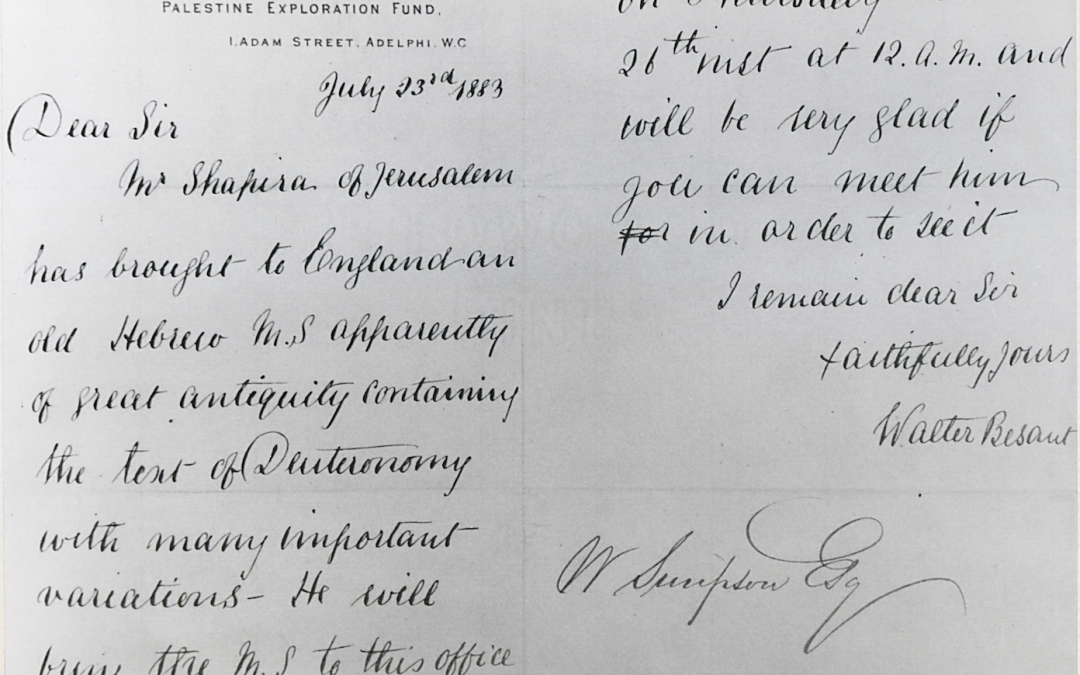 PALESTINE EXPLORATION FUND,
1, ADAM STREET, ADELPHI, W.C
July 23rd 1883
Dear Sir
Mr Shapira of Jerusalem
has brought to England an
old Hebrew M.S apparently
of great antiquity containing
the text of Deuteronomy
with many important
variations - He will
bring the M.S to this office
on
26th inst at 12. A.M. and
will be very glad if
you can meet him
for in order to see it
I remain dear Sir
faithfully yours
Walter Besant
W Simpson Esq